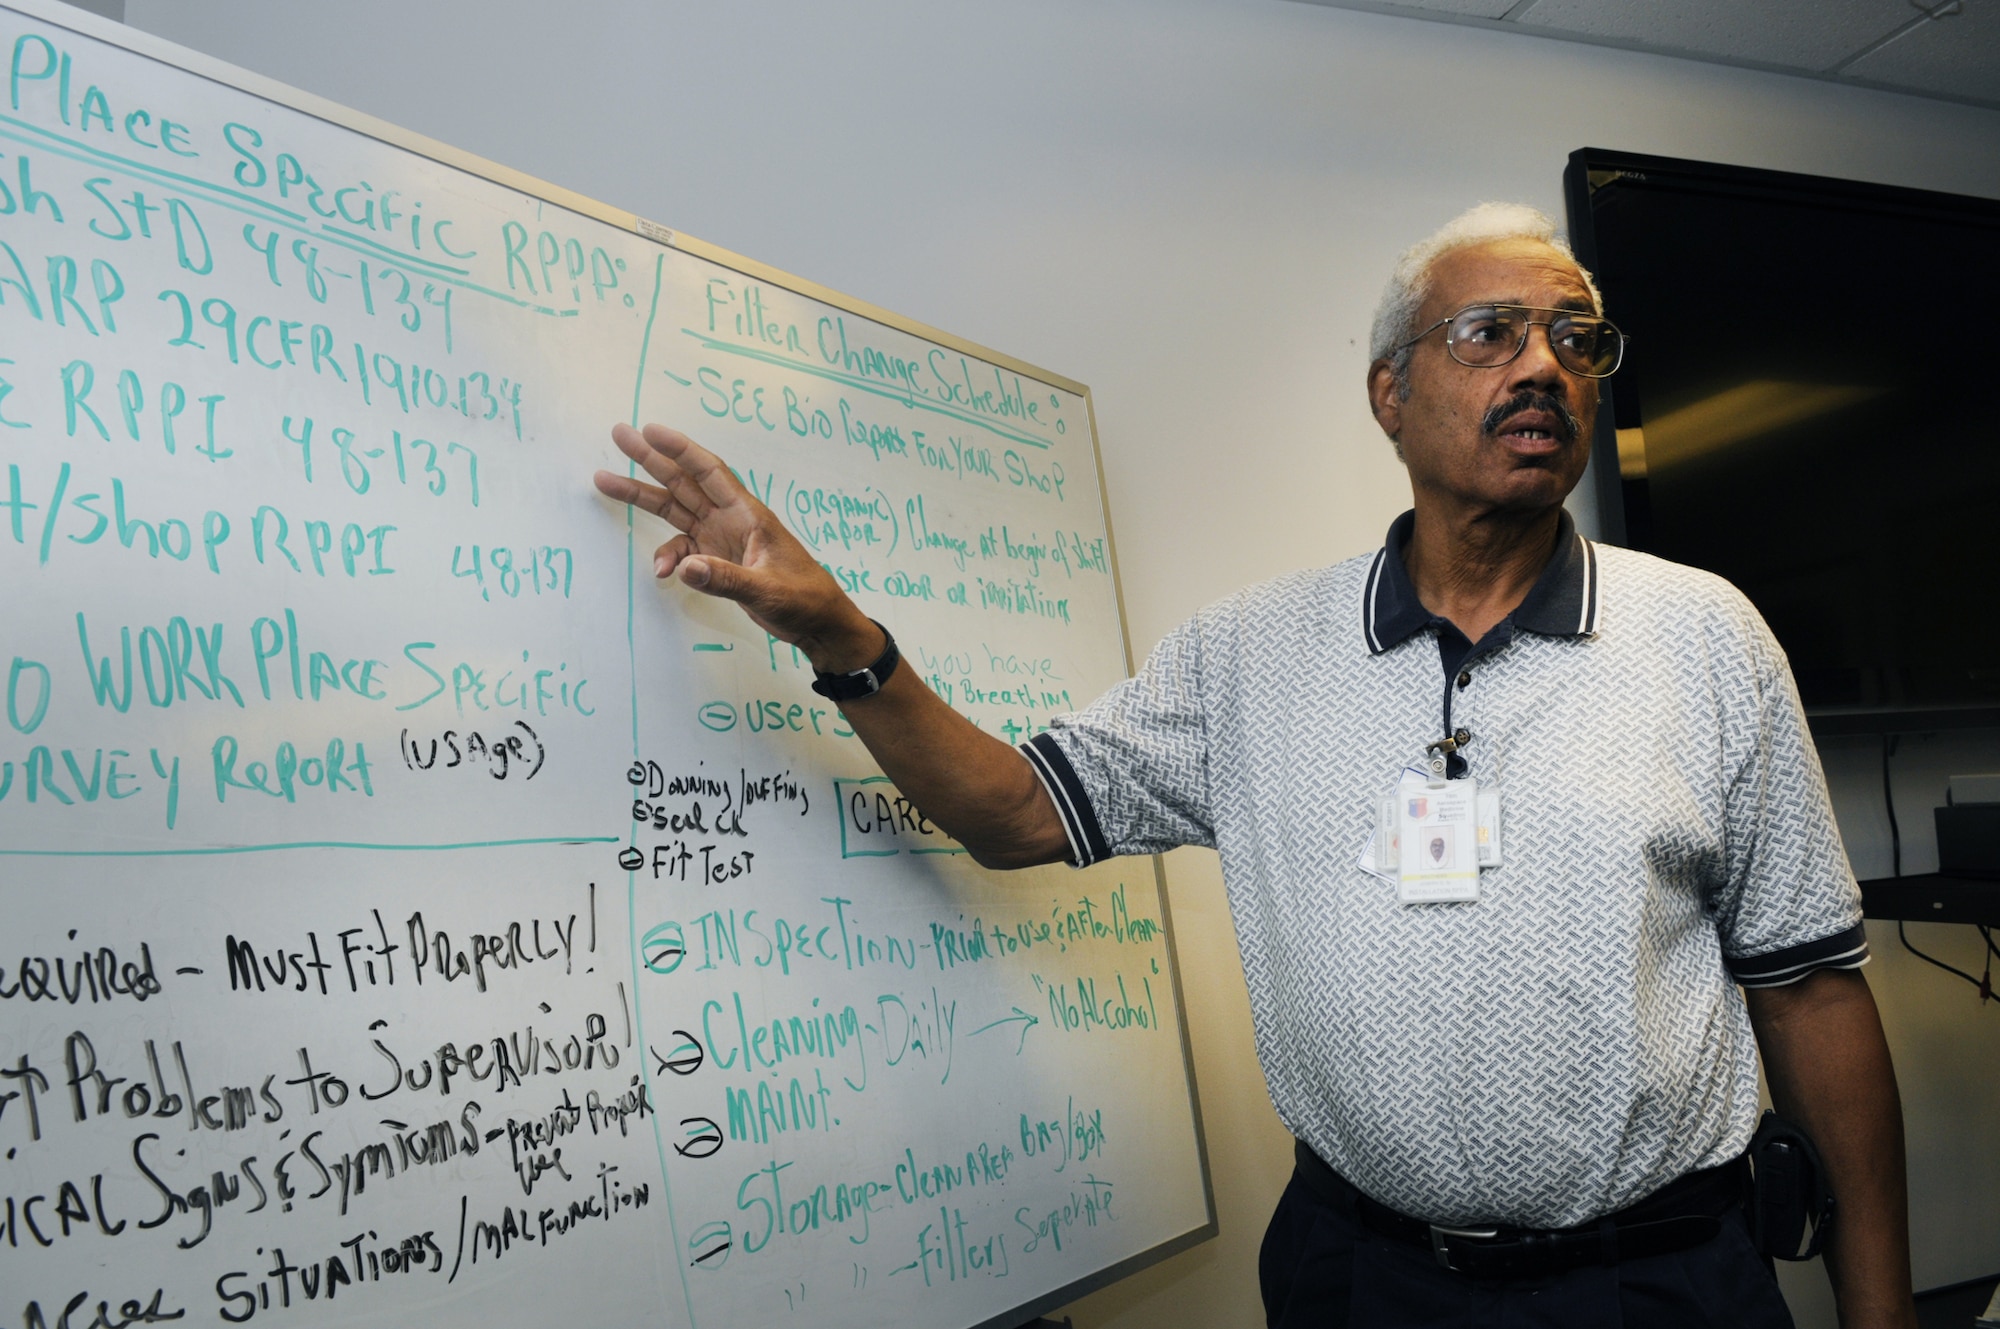 PLACE SPECIFIC RPPP:
Sh StD 48-134
ARP 29CFR1910.134
E RPPI 48-137
t/Shop RPPI 48-137
O WORKPLACE SPECIFIC
URVEY REPORT (USAge)
EQUIRED - MUST FIT PROPERLY!
RT PROBLEMS to SUPERVISOR!
ICAL SIGNS & SYMTOMS - PREVENT PROPER
USE
SITUATIONS/MALFUNCTION
Filter Change Schedule:
- SEE Bio Report FOR YOUR Shop
OV (ORGANIC VAPOR) Change AT begin of shift
taste ODOR OR irritation
you have
Breathing
users
Donning/Duffing
Seal CK
Fit Test
CARE
INSPECTION - PRIOR to USE & AFTER CLEAN
Cleaning - Daily → "No Alcohol"
MAINT.
STORAGE - Clean AREA BAG/BOX
" " - Filters Seperate